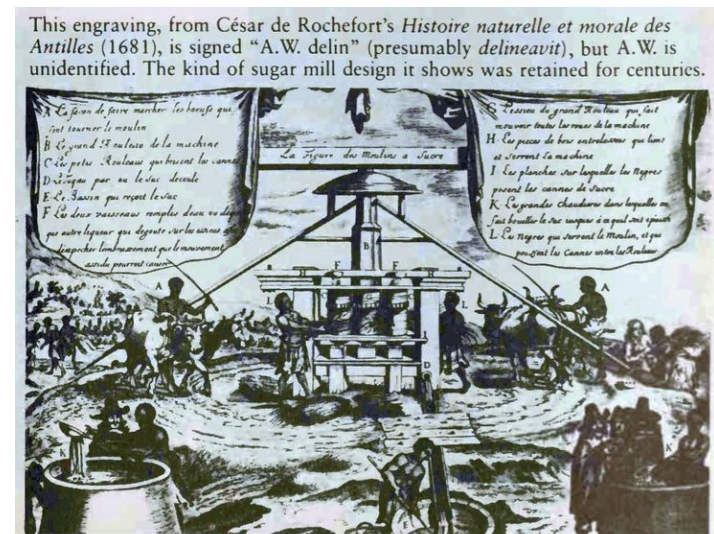 This engraving, from César de Rochefort's Histoire naturelle et morale des
Antilles (1681), is signed “A.W. delin” (presumably delineavit), but A.W. is
unidentified. The kind of sugar mill design it shows was retained for centuries.
A La façon de faire marcher les boeufs qui
font tourner le moulin
B Le grand Rouleau de la machine
C Les petis Rouleaux qui brisent les cannes
D Le tuyau par ou le suc decoule
E Le Bassin qui reçoit le suc
F Les deux vaisseaux remplis deau ou
que autre liqueur qui degoute sur les
d'apecher lembrasement que le mouvement
assidu pourroit causer
La Figure des Moulins a Sucre
G Lessieu du grand Rouleau qui fait
mouvoir toutes les roues de la machine
H Les pieces de bois entrelassees qui lient
et serrent la machine
I Les planches sur lesquelles les Negres
posent les cannes de Sucre
K Les grandes chaudieres dans lesquelles on
fait bouiller le suc jusques a
L Les Negres qui servent le Moulin, et qui
poussent les Cannes entre les Rouleaux
A
B
F
F
A
L
I
D
K
K
E